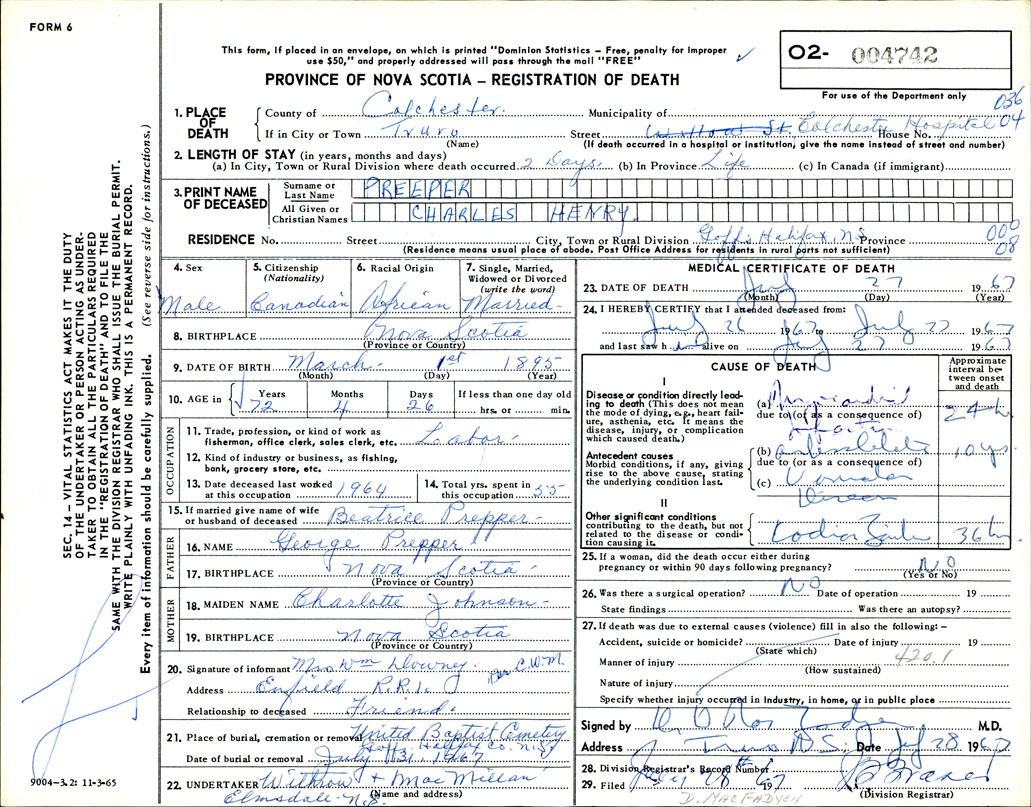 FORM 6
This form, if placed in an envelope, on which is printed "Dominion Statistics – Free, penalty for improper
use $50," and properly addressed will pass through the mail "FREE"
PROVINCE OF NOVA SCOTIA – REGISTRATION OF DEATH
O2- 004742
For use of the Department only
036
04
SEC. 14 – VITAL STATISTICS ACT MAKES IT THE DUTY
OF THE UNDERTAKER OR PERSON ACTING AS UNDER-
TAKER TO OBTAIN ALL THE PARTICULARS REQUIRED
IN THE "REGISTRATION OF DEATH" AND TO FILE THE
SAME WITH THE DIVISION REGISTRAR WHO SHALL ISSUE THE BURIAL PERMIT.
WRITE PLAINLY WITH UNFADING INK. THIS IS A PERMANENT RECORD.
Every item of information should be carefully supplied. (See reverse side for instructions.)
1. PLACE OF DEATH
County of Colchester. Municipality of
If in City or Town Truro Street Colchester Hospital House No.
(Name) (If death occurred in a hospital or institution, give the name instead of street and number)
2. LENGTH OF STAY (in years, months and days)
(a) In City, Town or Rural Division where death occurred 2 Days. (b) In Province Life (c) In Canada (if immigrant)
3. PRINT NAME OF DECEASED
Surname or Last Name PREEPER
All Given or Christian Names CHARLES HENRY.
RESIDENCE No. Street City, Town or Rural Division Goffs Halifax, NS Province
000
08
(Residence means usual place of abode. Post Office Address for residents in rural parts not sufficient)
4. Sex
Male
5. Citizenship (Nationality)
Canadian
6. Racial Origin
African
7. Single, Married, Widowed or Divorced (write the word)
Married-
8. BIRTHPLACE Nova Scotia
(Province or Country)
9. DATE OF BIRTH March 1st 1895
(Month) (Day) (Year)
10. AGE in Years Months Days If less than one day old
72 4 26 hrs. or min.
OCCUPATION
11. Trade, profession, or kind of work as
fisherman, office clerk, sales clerk, etc. Labor-
12. Kind of industry or business, as fishing,
bank, grocery store, etc.
13. Date deceased last worked
at this occupation 1964
14. Total yrs. spent in
this occupation 55
15. If married give name of wife
or husband of deceased Beatrice Prepper-
FATHER
16. NAME George Prepper
17. BIRTHPLACE Nova Scotia
(Province or Country)
MOTHER
18. MAIDEN NAME Charlotte Johnson-
19. BIRTHPLACE Nova Scotia
(Province or Country)
20. Signature of informant Mrs Wm Downey. Per C.W.M.
Address Enfield R.R.1.
Relationship to deceased Friend.
21. Place of burial, cremation or removal United Baptist Cemetery
Goffs Halifax Co. N.S.
Date of burial or removal July 31, 1967
22. UNDERTAKER Withrow & MacMillan
(Name and address)
Elmsdale N.S.
9004–3.2: 11-3-65
MEDICAL CERTIFICATE OF DEATH
23. DATE OF DEATH July 27 1967
(Month) (Day) (Year)
24. I HEREBY CERTIFY that I attended deceased from:
July 26 1967 to July 27 1967
and last saw h im alive on July 27 1967
CAUSE OF DEATH
Approximate interval between onset and death
I
Disease or condition directly lead-
ing to death (This does not mean
the mode of dying, e.g., heart fail-
ure, asthenia, etc. It means the
disease, injury, or complication
which caused death.)
(a) Myocardial 24 hr
due to (or as a consequence of)
Antecedent causes
Morbid conditions, if any, giving
rise to the above cause, stating
the underlying condition last.
(b) 10 yrs.
due to (or as a consequence of)
(c)
II
Other significant conditions
contributing to the death, but not
related to the disease or condi-
tion causing it.
36 hr.
25. If a woman, did the death occur either during
pregnancy or within 90 days following pregnancy? NO
(Yes or No)
26. Was there a surgical operation? NO Date of operation 19
State findings Was there an autopsy?
27. If death was due to external causes (violence) fill in also the following: –
Accident, suicide or homicide? Date of injury 19
(State which)
Manner of injury 420.1
(How sustained)
Nature of injury
Specify whether injury occurred in Industry, in home, or in public place
Signed by M.D.
Address Truro N.S. Date July 28 1967
28. Division Registrar's Record Number
29. Filed July 28th 1967
(Division Registrar)
D. MACFADYEN